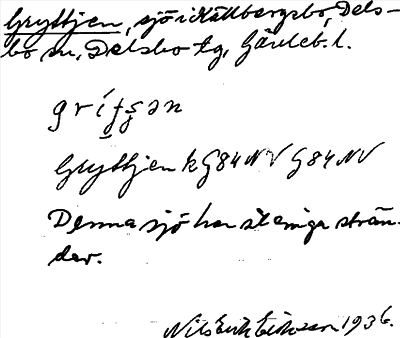 Gryttjen, sjö i Källbergsbo, Dels-
bo sn, Delsbo tg, Gävleb. l.
Gryttjen k G84NV G84NV
Denna sjö har steniga strän-
der.
Nils Erik Eriksson 1936.